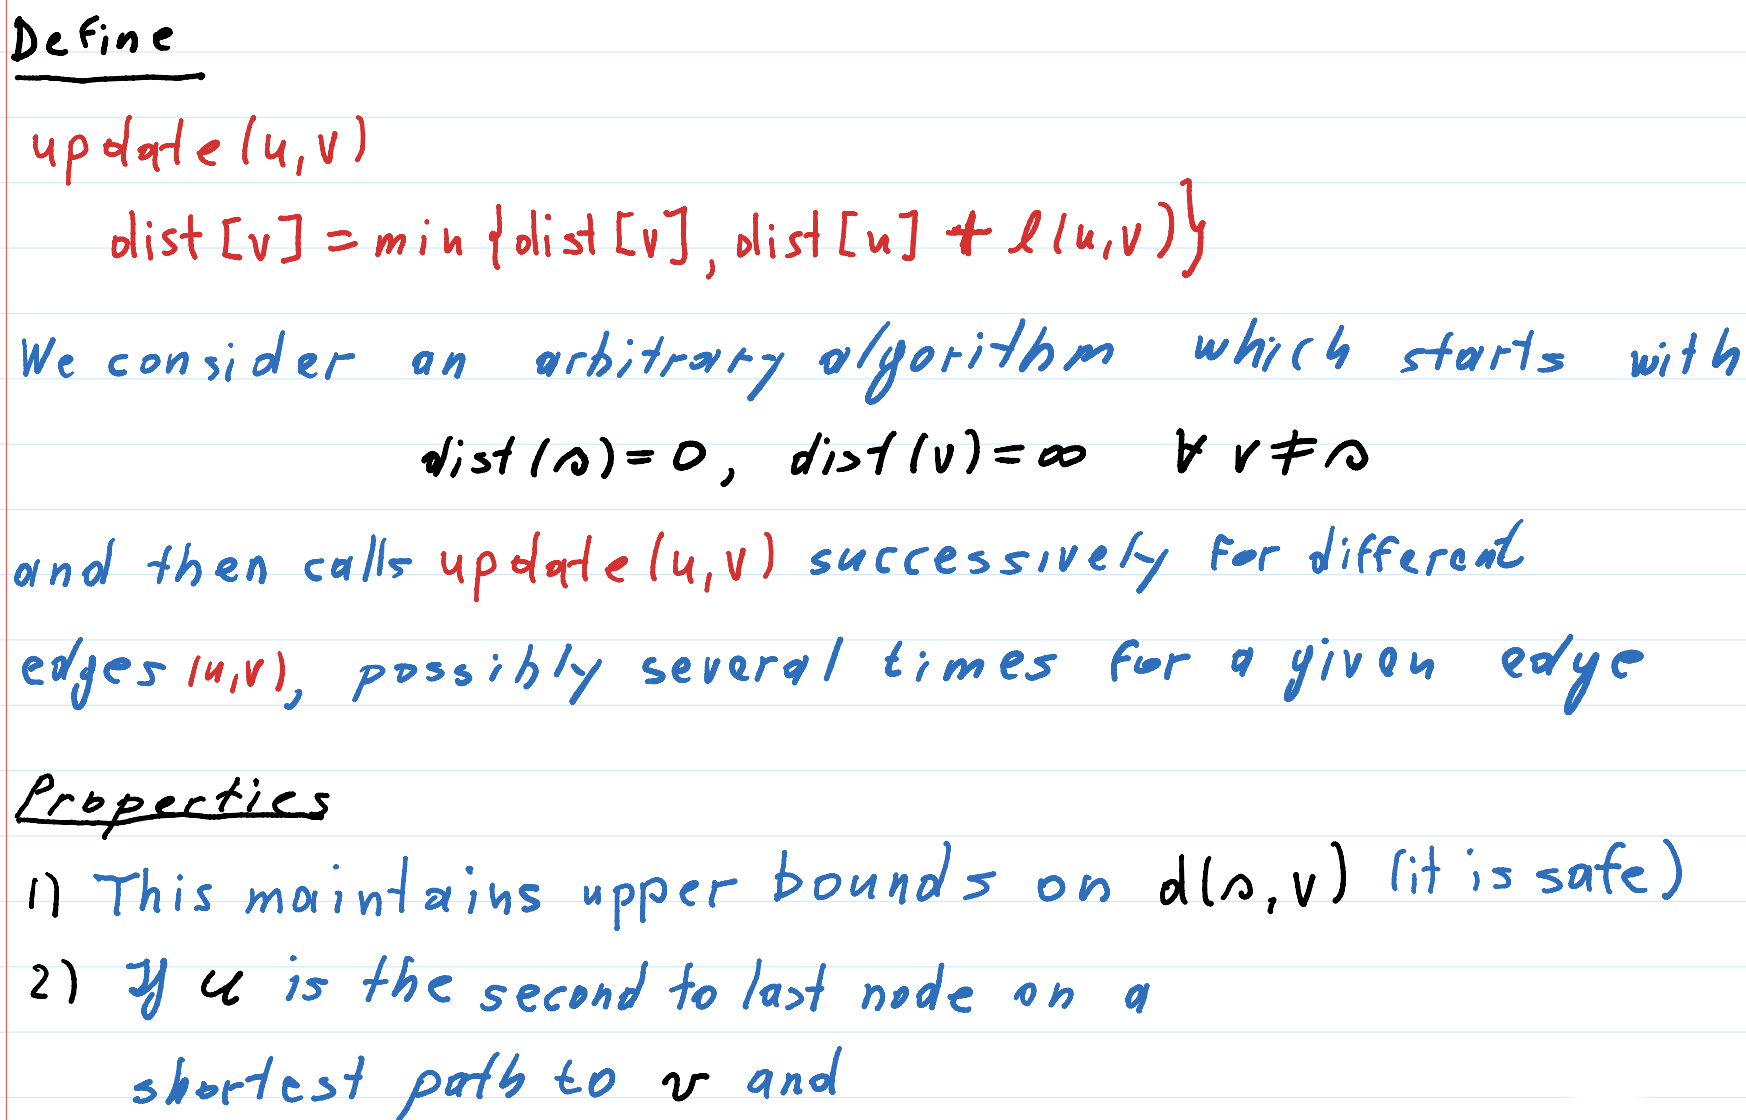 Define
update(u,v)
dist[v] = min{dist[v], dist[u] + l(u,v)}
We consider an arbitrary algorithm which starts with
dist(s)=0, dist(v)=∞ ∀ v≠s
and then calls update(u,v) successively for different
edges (u,v), possibly several times for a given edge
Properties
1) This maintains upper bounds on d(s,v) (it is safe)
2) If u is the second to last node on a
shortest path to v and